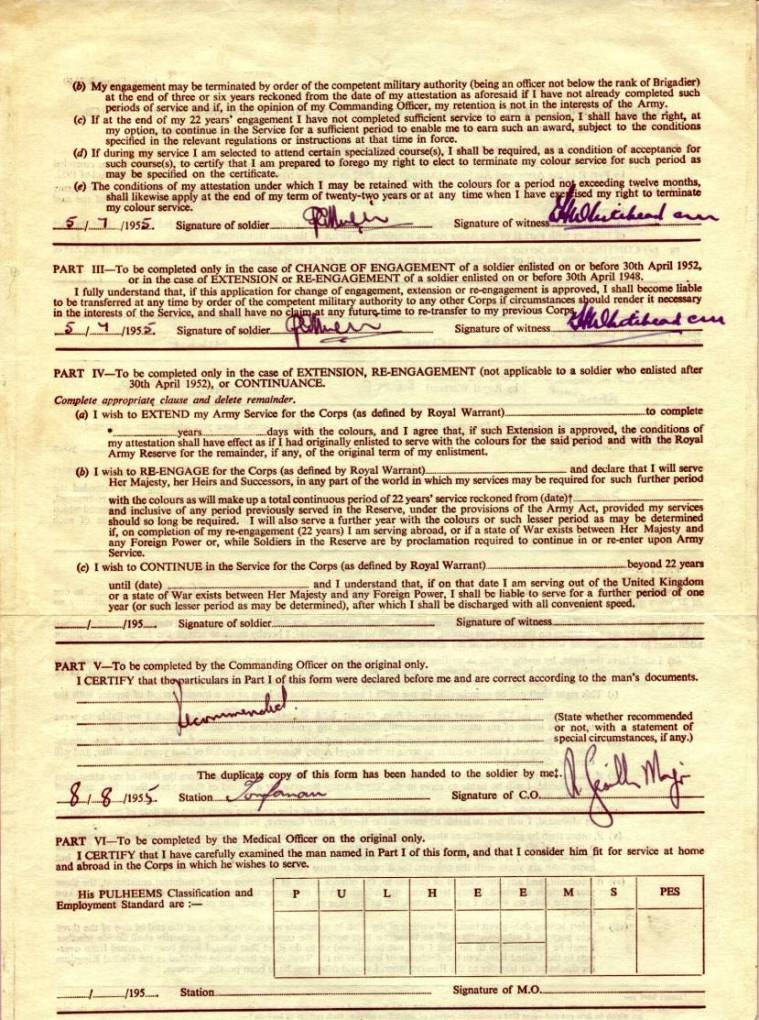 (b) My engagement may be terminated by order of the competent military authority (being an officer not below the rank of Brigadier)
at the end of three or six years reckoned from the date of my attestation as aforesaid if I have not already completed such
periods of service and if, in the opinion of my Commanding Officer, my retention is not in the interests of the Army.
(c) If at the end of my 22 years' engagement I have not completed sufficient service to earn a pension, I shall have the right, at
my option, to continue in the Service for a sufficient period to enable me to earn such an award, subject to the conditions
specified in the relevant regulations or instructions at that time in force.
(d) If during my service I am selected to attend certain specialized course(s), I shall be required, as a condition of acceptance for
such course(s), to certify that I am prepared to forego my right to elect to terminate my colour service for such period as
may be specified on the certificate.
(e) The conditions of my attestation under which I may be retained with the colours for a period not exceeding twelve months,
shall likewise apply at the end of my term of twenty-two years or at any time when I have exercised my right to terminate
my colour service.
5 / 7 /1955. Signature of soldier Signature of witness Whitehead
PART III—To be completed only in the case of CHANGE OF ENGAGEMENT of a soldier enlisted on or before 30th April 1952,
or in the case of EXTENSION or RE-ENGAGEMENT of a soldier enlisted on or before 30th April 1948.
I fully understand that, if this application for change of engagement, extension or re-engagement is approved, I shall become liable
to be transferred at any time by order of the competent military authority to any other Corps if circumstances should render it necessary
in the interests of the Service, and shall have no claim at any future time to re-transfer to my previous Corps.
5 / 7 /1955. Signature of soldier Signature of witness Whitehead
PART IV—To be completed only in the case of EXTENSION, RE-ENGAGEMENT (not applicable to a soldier who enlisted after
30th April 1952), or CONTINUANCE.
Complete appropriate clause and delete remainder.
(a) I wish to EXTEND my Army Service for the Corps (as defined by Royal Warrant) to complete
* years days with the colours, and I agree that, if such Extension is approved, the conditions of
my attestation shall have effect as if I had originally enlisted to serve with the colours for the said period and with the Royal
Army Reserve for the remainder, if any, of the original term of my enlistment.
(b) I wish to RE-ENGAGE for the Corps (as defined by Royal Warrant) and declare that I will serve
Her Majesty, her Heirs and Successors, in any part of the world in which my services may be required for such further period
with the colours as will make up a total continuous period of 22 years' service reckoned from (date)†
and inclusive of any period previously served in the Reserve, under the provisions of the Army Act, provided my services
should so long be required. I will also serve a further year with the colours or such lesser period as may be determined
if, on completion of my re-engagement (22 years) I am serving abroad, or if a state of War exists between Her Majesty and
any Foreign Power or, while Soldiers in the Reserve are by proclamation required to continue in or re-enter upon Army
Service.
(c) I wish to CONTINUE in the Service for the Corps (as defined by Royal Warrant) beyond 22 years
until (date) and I understand that, if on that date I am serving out of the United Kingdom
or a state of War exists between Her Majesty and any Foreign Power, I shall be liable to serve for a further period of one
year (or such lesser period as may be determined), after which I shall be discharged with all convenient speed.
/ /195 . Signature of soldier Signature of witness
PART V—To be completed by the Commanding Officer on the original only.
I CERTIFY that the particulars in Part I of this form were declared before me and are correct according to the man's documents.
Recommended.
(State whether recommended
or not, with a statement of
special circumstances, if any.)
The duplicate copy of this form has been handed to the soldier by me‡.
8 / 8 /1955 Station Signature of C.O. Major
PART VI—To be completed by the Medical Officer on the original only.
I CERTIFY that I have carefully examined the man named in Part I of this form, and that I consider him fit for service at home
and abroad in the Corps in which he wishes to serve.
His PULHEEMS Classification and
Employment Standard are :—
P U L H E E M S PES
/ /195 . Station Signature of M.O.